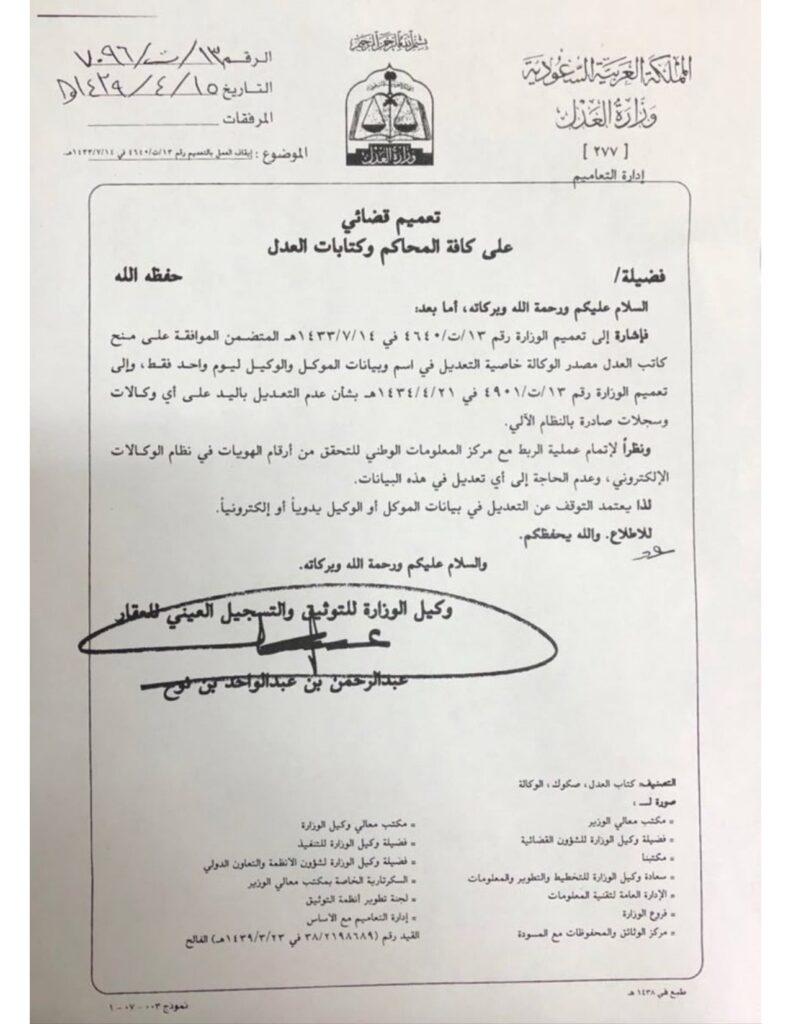 بسم الله الرحمن الرحيم
المملكة العربية السعودية
وزارة العدل
[ ٢٧٧ ]
إدارة التعاميم
وزارة العدل
الرقم ١٣/ت/٧٠٩٦
التاريخ ١٥/٤/١٤٣٩هـ
المرفقات
الموضوع : إيقاف العمل بالتعميم رقم ١٣/ت/٤٦٤٠ في ١٤٣٣/٧/١٤هـ
تعميم قضائي
على كافة المحاكم وكتابات العدل
فضيلة/ حفظه الله
السلام عليكم ورحمة الله وبركاته، أما بعد:
فإشارة إلى تعميم الوزارة رقم ١٣/ت/٤٦٤٠ في ١٤٣٣/٧/١٤هـ المتضمن الموافقة على منح
كاتب العدل مصدر الوكالة خاصية التعديل في اسم وبيانات الموكل والوكيل ليوم واحد فقط، وإلى
تعميم الوزارة رقم ١٣/ت/٤٩٠١ في ١٤٣٤/٤/٢١هـ بشأن عدم التعديل باليد على أي وكالات
وسجلات صادرة بالنظام الآلي.
ونظراً لإتمام عملية الربط مع مركز المعلومات الوطني للتحقق من أرقام الهويات في نظام الوكالات
الإلكتروني، وعدم الحاجة إلى أي تعديل في هذه البيانات.
لذا يعتمد التوقف عن التعديل في بيانات الموكل أو الوكيل يدوياً أو إلكترونياً.
للاطلاع. والله يحفظكم.
والسلام عليكم ورحمة الله وبركاته.
وكيل الوزارة للتوثيق والتسجيل العيني للعقار
عبدالرحمن بن عبدالواحد بن نوح
التصنيف: كتاب العدل، صكوك، الوكالة
صورة لـــ :
* مكتب معالي الوزير
* فضيلة وكيل الوزارة للشؤون القضائية
* مكتبنا
* سعادة وكيل الوزارة للتخطيط والتطوير والمعلومات
* الإدارة العامة لتقنية المعلومات
* فروع الوزارة
* مركز الوثائق والمحفوظات مع المسودة
* مكتب معالي وكيل الوزارة
* فضيلة وكيل الوزارة للتنفيذ
* فضيلة وكيل الوزارة لشؤون الأنظمة والتعاون الدولي
* السكرتارية الخاصة بمكتب معالي الوزير
* لجنة تطوير أنظمة التوثيق
* إدارة التعاميم مع الأساس
القيد رقم (٣٨/٢١٩٨٦٨٩ في ١٤٣٩/٣/٢٣هـ) الفالح
طبع في ١٤٣٨ هـ
نموذج ٠٠٣-٠٧-١